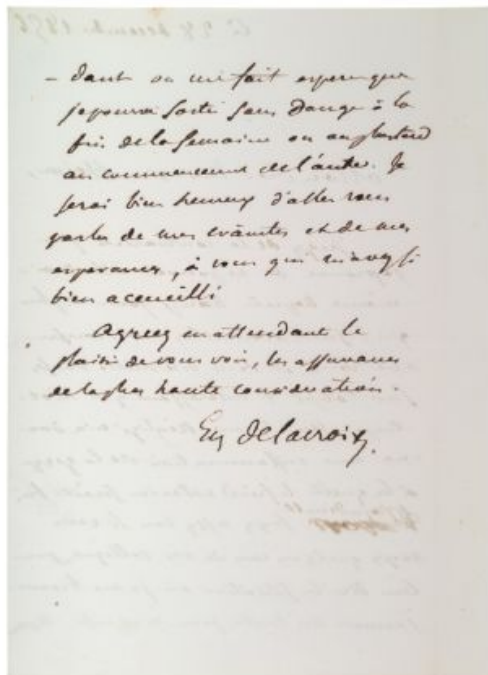 - dant on me fait esperer que
je pourrai sortir sans danger à la
fin de la semaine ou au plus tard
au commencement de l'autre. Je
serai bien heureux d'aller vous
parler de mes craintes et de mes
esperances, à vous qui m'avez si
bien accueilli
Agreez en attendant le
plaisir de vous voir, les assurances
de la plus haute consideration.
Eug Delacroix